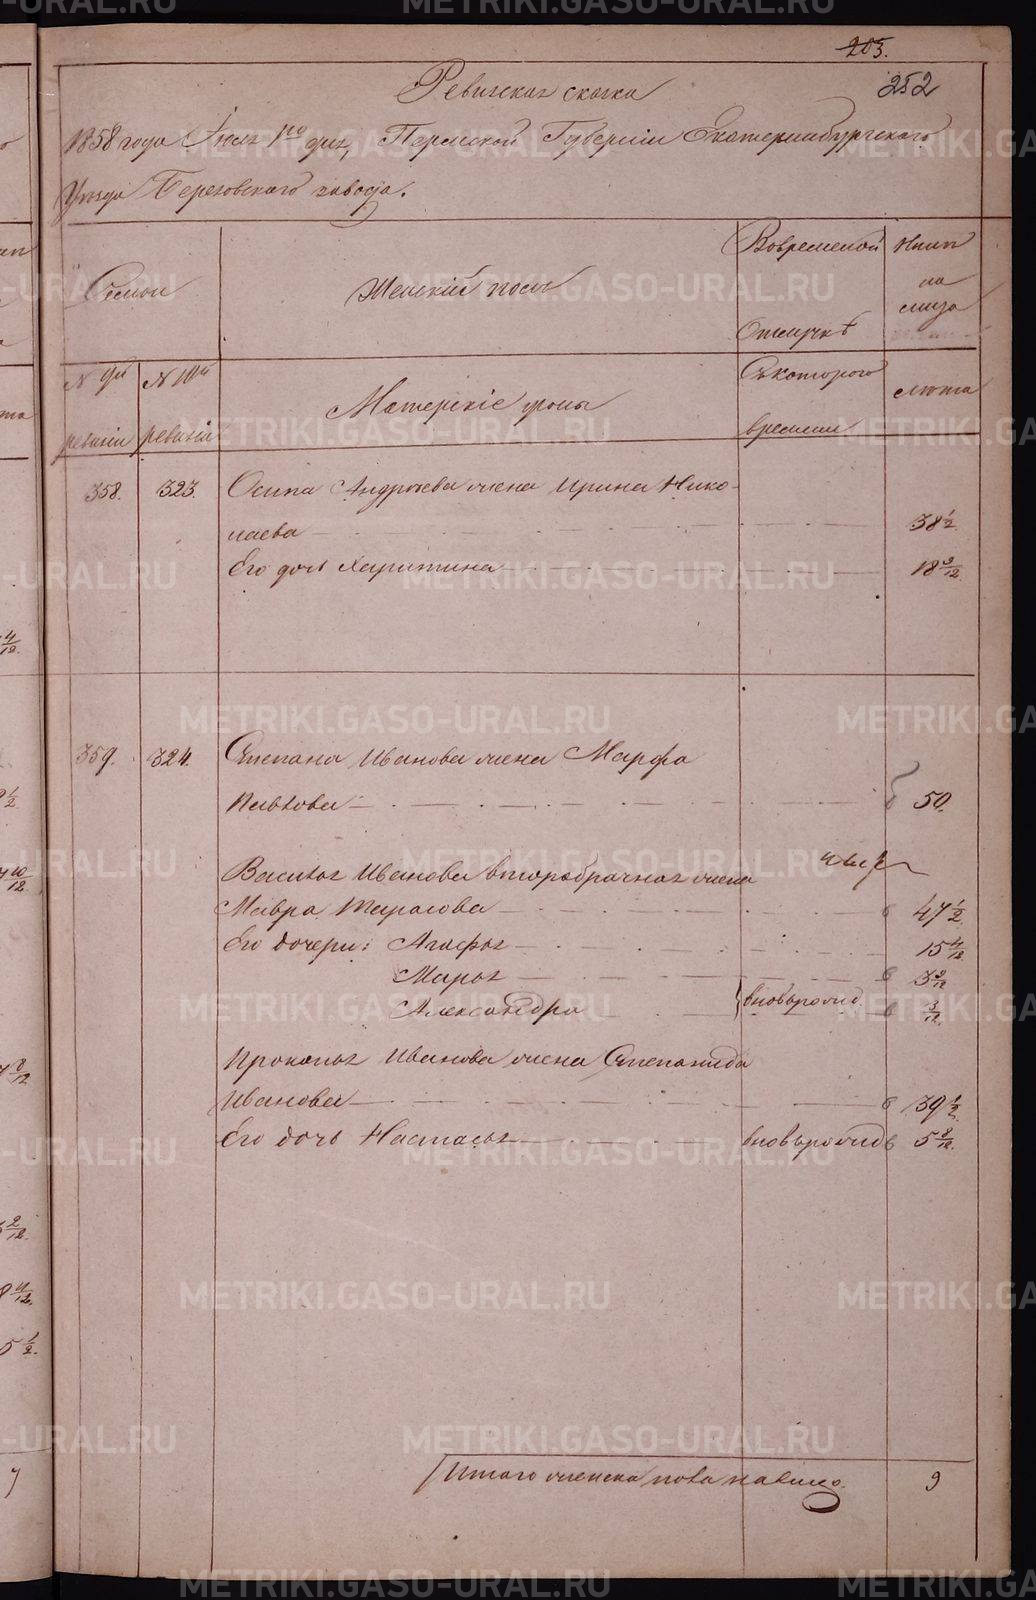 203.
252
Ревизская сказка
1858 года Июля 1го дня, Пермской Губернiи Екатеринбургскаго
Уезда Березовскаго завода.
Семьи
Женскiй полъ
Вовременой
Отлучкѣ
Ныне
на
лицо
N 9й
ревизiи
N 10й
ревизiи
Матерскiе
Съкотораго
времени
лѣта
358. 323. Осипа Андреева жена Ирина Нико-
лаева 38 1/2
Его дочь Харитина 18 3/12
359. 324. Степана Иванова жена Марфа
Павлова 50.
Василья Иванова второбрачная жена
Мавра Тарасова 47 1/2
Его дочери: Агафья 15 4/12
Марья 3 3/12
Александра вновьрожд. 3/12
Прокопья Иванова жена Степанида
Иванова 39 1/2
Его дочь Настасья вновьрожд 5 8/12
Итого женска пола налицо. 9
METRIKI.GASO-URAL.RU